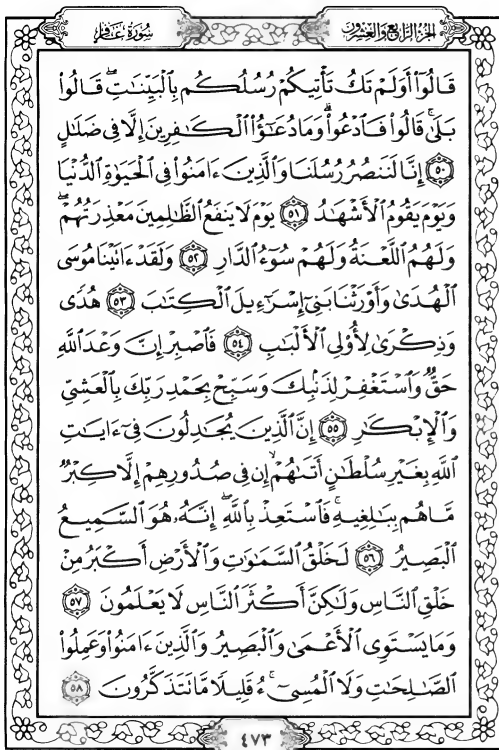 سُورَةُ غَافِرٍ الجُزْءُ الرَّابِعُ وَالعِشْرُونَ
قَالُوٓا۟ أَوَلَمْ تَكُ تَأْتِيكُمْ رُسُلُكُم بِٱلْبَيِّنَٰتِ ۖ قَالُوا۟
بَلَىٰ ۚ قَالُوا۟ فَٱدْعُوا۟ ۗ وَمَا دُعَٰٓؤُا۟ ٱلْكَٰفِرِينَ إِلَّا فِى ضَلَٰلٍ
﴿٥٠﴾ إِنَّا لَنَنصُرُ رُسُلَنَا وَٱلَّذِينَ ءَامَنُوا۟ فِى ٱلْحَيَوٰةِ ٱلدُّنْيَا
وَيَوْمَ يَقُومُ ٱلْأَشْهَٰدُ ﴿٥١﴾ يَوْمَ لَا يَنفَعُ ٱلظَّٰلِمِينَ مَعْذِرَتُهُمْ ۖ
وَلَهُمُ ٱللَّعْنَةُ وَلَهُمْ سُوٓءُ ٱلدَّارِ ﴿٥٢﴾ وَلَقَدْ ءَاتَيْنَا مُوسَى
ٱلْهُدَىٰ وَأَوْرَثْنَا بَنِىٓ إِسْرَٰٓءِيلَ ٱلْكِتَٰبَ ﴿٥٣﴾ هُدًى
وَذِكْرَىٰ لِأُو۟لِى ٱلْأَلْبَٰبِ ﴿٥٤﴾ فَٱصْبِرْ إِنَّ وَعْدَ ٱللَّهِ
حَقٌّ وَٱسْتَغْفِرْ لِذَنۢبِكَ وَسَبِّحْ بِحَمْدِ رَبِّكَ بِٱلْعَشِىِّ
وَٱلْإِبْكَٰرِ ﴿٥٥﴾ إِنَّ ٱلَّذِينَ يُجَٰدِلُونَ فِىٓ ءَايَٰتِ
ٱللَّهِ بِغَيْرِ سُلْطَٰنٍ أَتَىٰهُمْ ۙ إِن فِى صُدُورِهِمْ إِلَّا كِبْرٌ
مَّا هُم بِبَٰلِغِيهِ ۚ فَٱسْتَعِذْ بِٱللَّهِ ۖ إِنَّهُۥ هُوَ ٱلسَّمِيعُ
ٱلْبَصِيرُ ﴿٥٦﴾ لَخَلْقُ ٱلسَّمَٰوَٰتِ وَٱلْأَرْضِ أَكْبَرُ مِنْ
خَلْقِ ٱلنَّاسِ وَلَٰكِنَّ أَكْثَرَ ٱلنَّاسِ لَا يَعْلَمُونَ ﴿٥٧﴾
وَمَا يَسْتَوِى ٱلْأَعْمَىٰ وَٱلْبَصِيرُ وَٱلَّذِينَ ءَامَنُوا۟ وَعَمِلُوا۟
ٱلصَّٰلِحَٰتِ وَلَا ٱلْمُسِىٓءُ ۚ قَلِيلًا مَّا تَتَذَكَّرُونَ ﴿٥٨﴾
٤٧٣